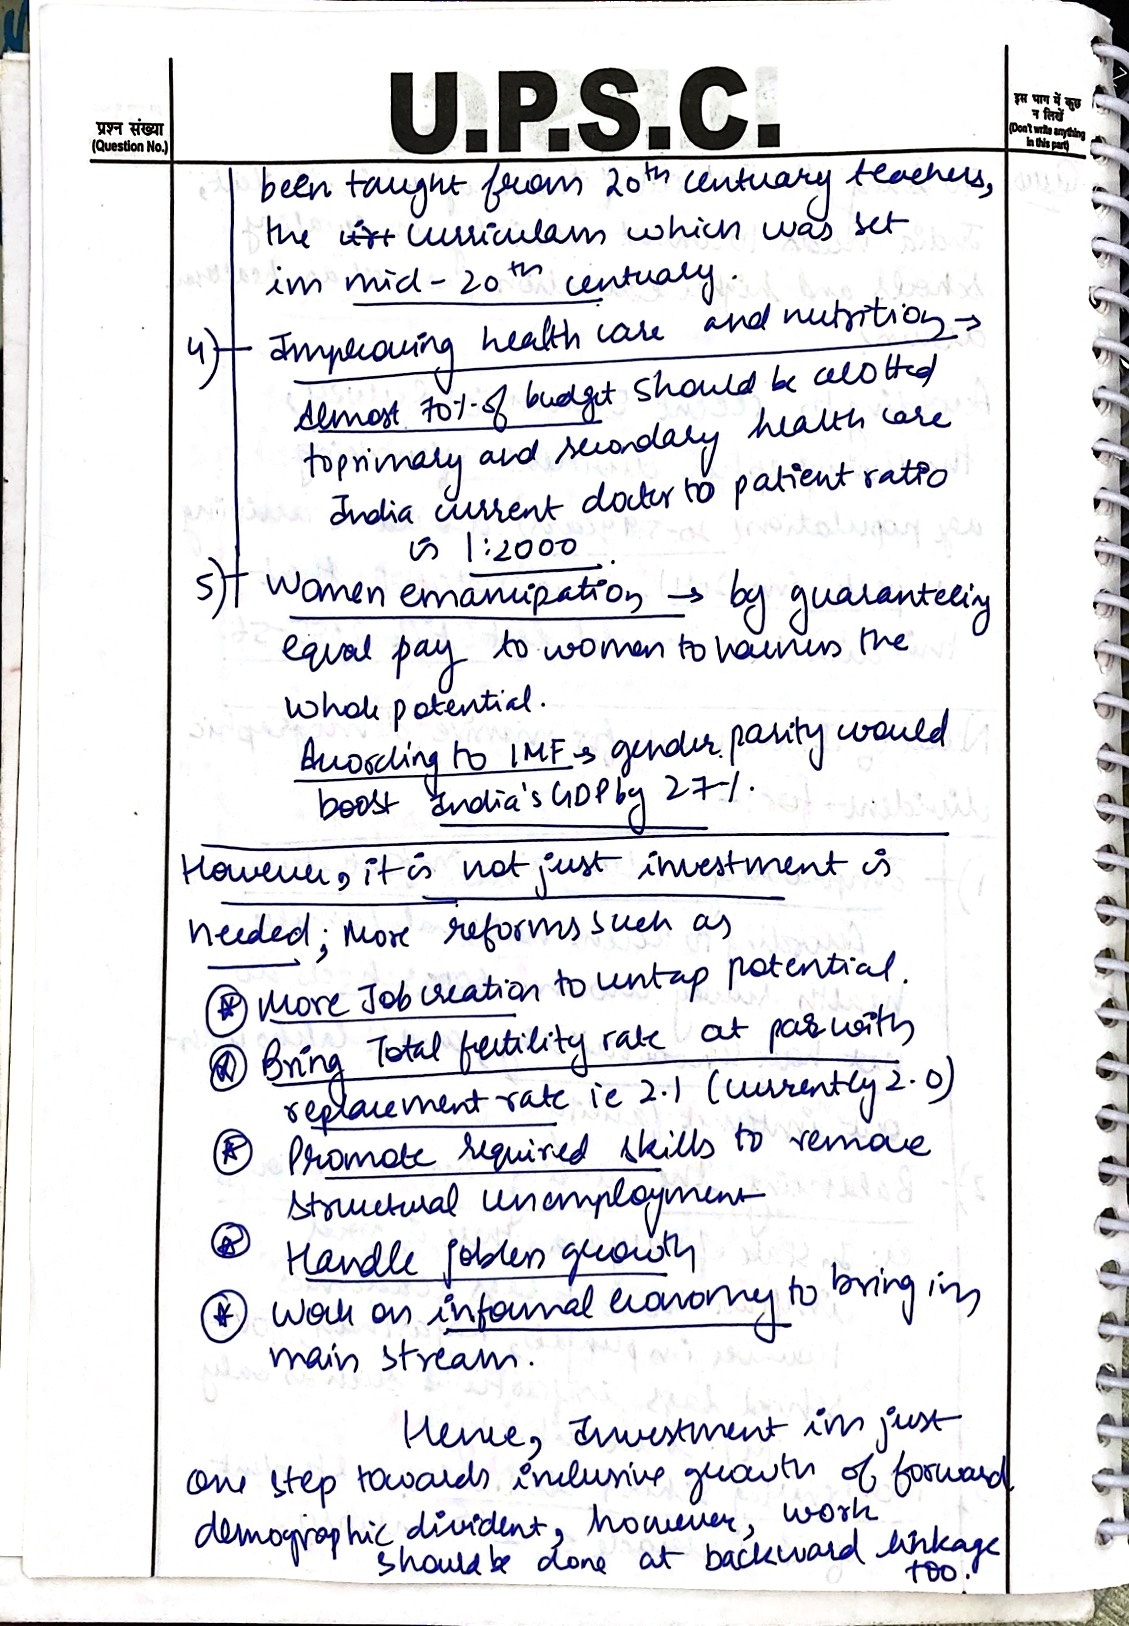 U.P.S.C.
प्रश्न संख्या
(Question No.)
इस भाग में कुछ
न लिखें
(Don't write anything
in this part)
been taught from 20th centuary teachers,
the curriculam which was set
in mid-20th centuary.
4) Improving health care and nutrition →
Almost 70% of budget should be alotted
to primary and secondary health care
India current doctor to patient ratio
is 1:2000.
5) Women emancipation → by guaranteeing
equal pay to women to harness the
whole potential.
According to IMF → gender parity would
boost India's GDP by 27%.
However, it is not just investment is
needed; More reforms such as
More Job creation to untap potential.
Bring Total fertility rate at par with
replacement rate ie 2.1 (currently 2.0)
Promote required skills to remove
structural unemployment
Handle jobless growth
Work on informal economy to bring in
main stream.
Hence, Investment in just
one step towards inclusive growth of forward
demographic divident, however, work
should be done at backward linkage
too.